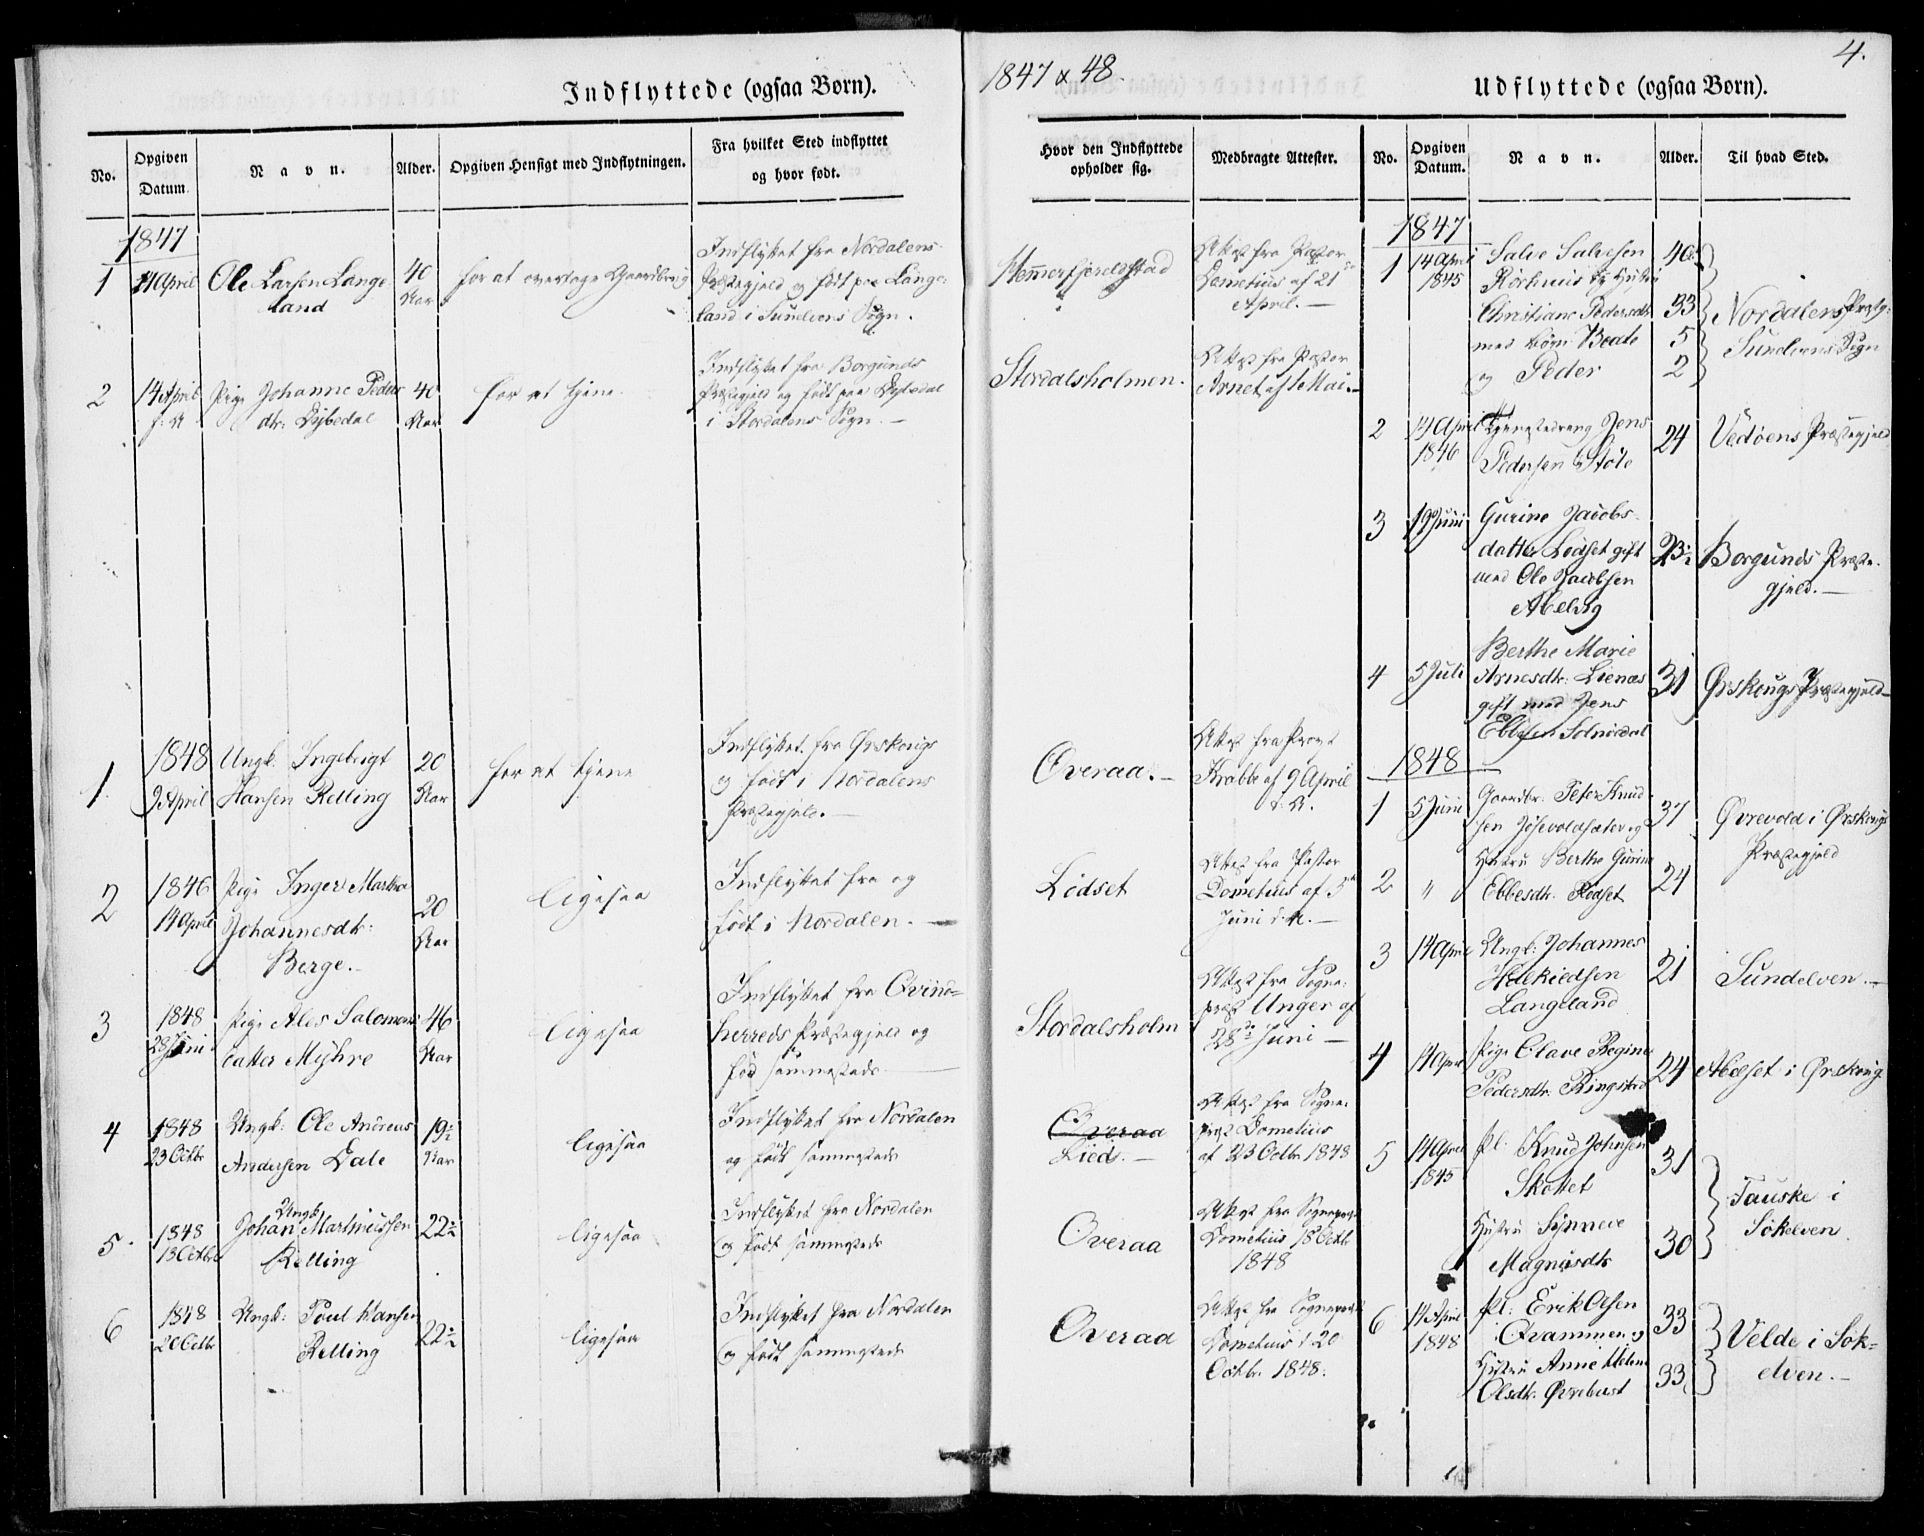 Indflyttede (ogsaa Børn).
No.
Opgiven
Datum.
Navn.
Alder.
Opgiven Hensigt med Indflytningen.
Fra hvilket Sted indflyttet
og hvor født.
1847
1
14 April
Ole Larsen Lange
land
40
Aar
for at overtage Gaardbrug
Indflyttet fra Nordalens
Præstegjeld og født paa Lange-
land i Sunelvens Sogn.
2
14 April
Pige Johanne Peders
dtr: Dybedal
40
Aar
for at tjene
Indflyttet fra Borgunds
Præstegjeld og født paa Dybedal
i Stordalens Sogn.
1.
1848
9 April
Ungk: Ingebrigt
Hansen Relling
20
Aar
for at tjene
Indflyttet fra Ørskougs
og født i Nordalens
Præstegjeld.
2
1846
14 April
Pige Inger Martha
Johannesdtr:
Berge.
20
Aar
ligesaa
Indflyttet fra og
født i Nordalen.
3
1848
28 Juni
Pige Ales Salomons
datter Myhre
46
Aar
ligesaa
Indflyttet fra Qvind-
herreds Præstegjeld og
fød sammesteds
4
1848
23 Octbr
Ungk: Ole Andreas
Andersen Dale
19½
Aar
ligesaa
Indflyttet fra Nordalen
og født sammesteds
5.
1848
18 Octbr
Ungk:
Johan Martinussen
Relling
22½
ligesaa
Indflyttet fra Nordalen
og født sammesteds
6
1848
20 Octbr
Ungk: Poul Hansen
Relling
22½
ligesaa
Indflyttet fra Nordalen
og født sammesteds
1847 & 48
4.
Udflyttede (ogsaa Børn).
Hvor den Indflyttede
opholder sig.
Medbragte Attester.
No.
Opgiven
Datum.
Navn.
Alder.
Til hvad Sted.
Hemmerfjeldstad
Attest fra Pastor
Dometius af 21
April.
Stordalsholmen.
Attest fra Pastor
Arnet af 1 Mai.
Overaa.
Attest fra Provst
Krabbe af 9 April
Lødset
Attest fra Pastor
Dometius af 5te
Juni
Stordalsholm
Attest fra Sogne-
præst Unger af
28de Juni
Overaa
Lied.
Attest fra Sogne-
præst Dometius
af 23 Octbr 1848
Overaa
Attest fra Sognepræst
Dometius 18 Octbr
1848
Overaa
Attest fra Sognepræst
Dometius 20
Octbr. 1848.
1847
1
14 April
1845
Salve Salvesen
Rørhuus og Hustru
Christiane Pedersdtr
med Børn Beate
og Peder
40
33
5
2
Nordalens Præstg:
Sunelvens Sogn
2
14 April
1846
Tjenestedreng Jens
Pedersen Støle
24
Vedøens Præstegjeld
3
19 Juni
Gurine Jacobs-
datter Lødset gift
med Ole Jacobsen
Abelvig
23½
Borgunds Præste-
gjeld.
4
5 Juli
Berthe Marie
Arnesdtr: Lienæs
gift med Jens
Ebbesen Solnørdal
31
Ørskougs Præstegjeld
1848
1
5 Juni
Gaardbr: Peter Knud
sen Jøsevoldsæter og
37
Øvrevold i Ørskougs
Præstegjeld
2
"
Hustru Berthe Gurine
Ebbesdtr: Rødset
24
3
14 April
Ungk: Johannes
Helkiedsen
Langeland
21
Sundelven.
4
14 April
Pige Olave Regine
Pedersdtr: Ringstad
24
Abelset i Ørskoug
5
14 April
1845
pl: Knud Johnsen
Skottet
31
Hustru Synneve
Magnusdtr
30
Tauske i
Søkelven
6
14 April
1848
pl: Erik Olsen
Qvammen og
33
Hustru Anne Helene
Olsdtr: Øvrebust
33
Velde i Søk-
elven.